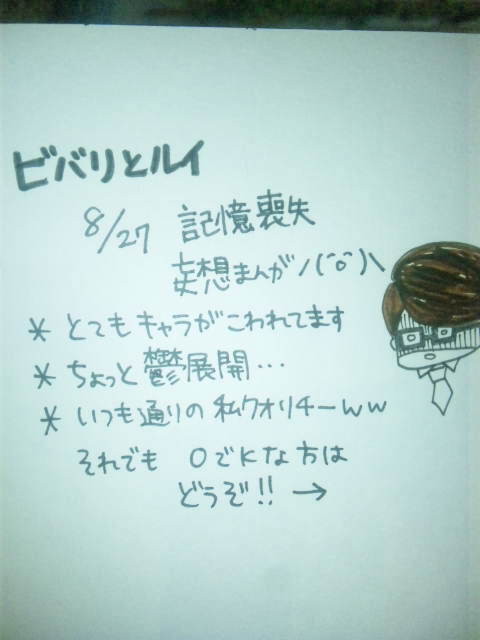 ビバリとルイ
8/27 記憶喪失
妄想まんが /(^o^)\
* とてもキャラがこわれてます
* ちょっと鬱展開…
* いつも通りの私クオリチーww
それでも OでKな方は
どうぞ!! →